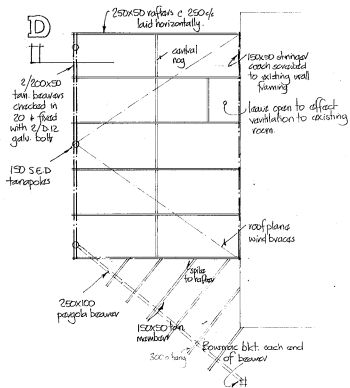 250x50 rafters c 250 c/s
laid horizontally.
D
central
nog
150x50 stringer
coach screwed
to existing wall
framing
2/200x50
tan. beavers
checked in
20 & fixed
with 2/D.12
galv. bolts
leave open to effect
ventilation to existing
room.
150 S.E.D
tanapoles
roof plane
wind braces
spike
to rafter
250x100
pergola beaver
150x50 tan.
members
300 o'hang
Bowmac bkt. each end
of beaver